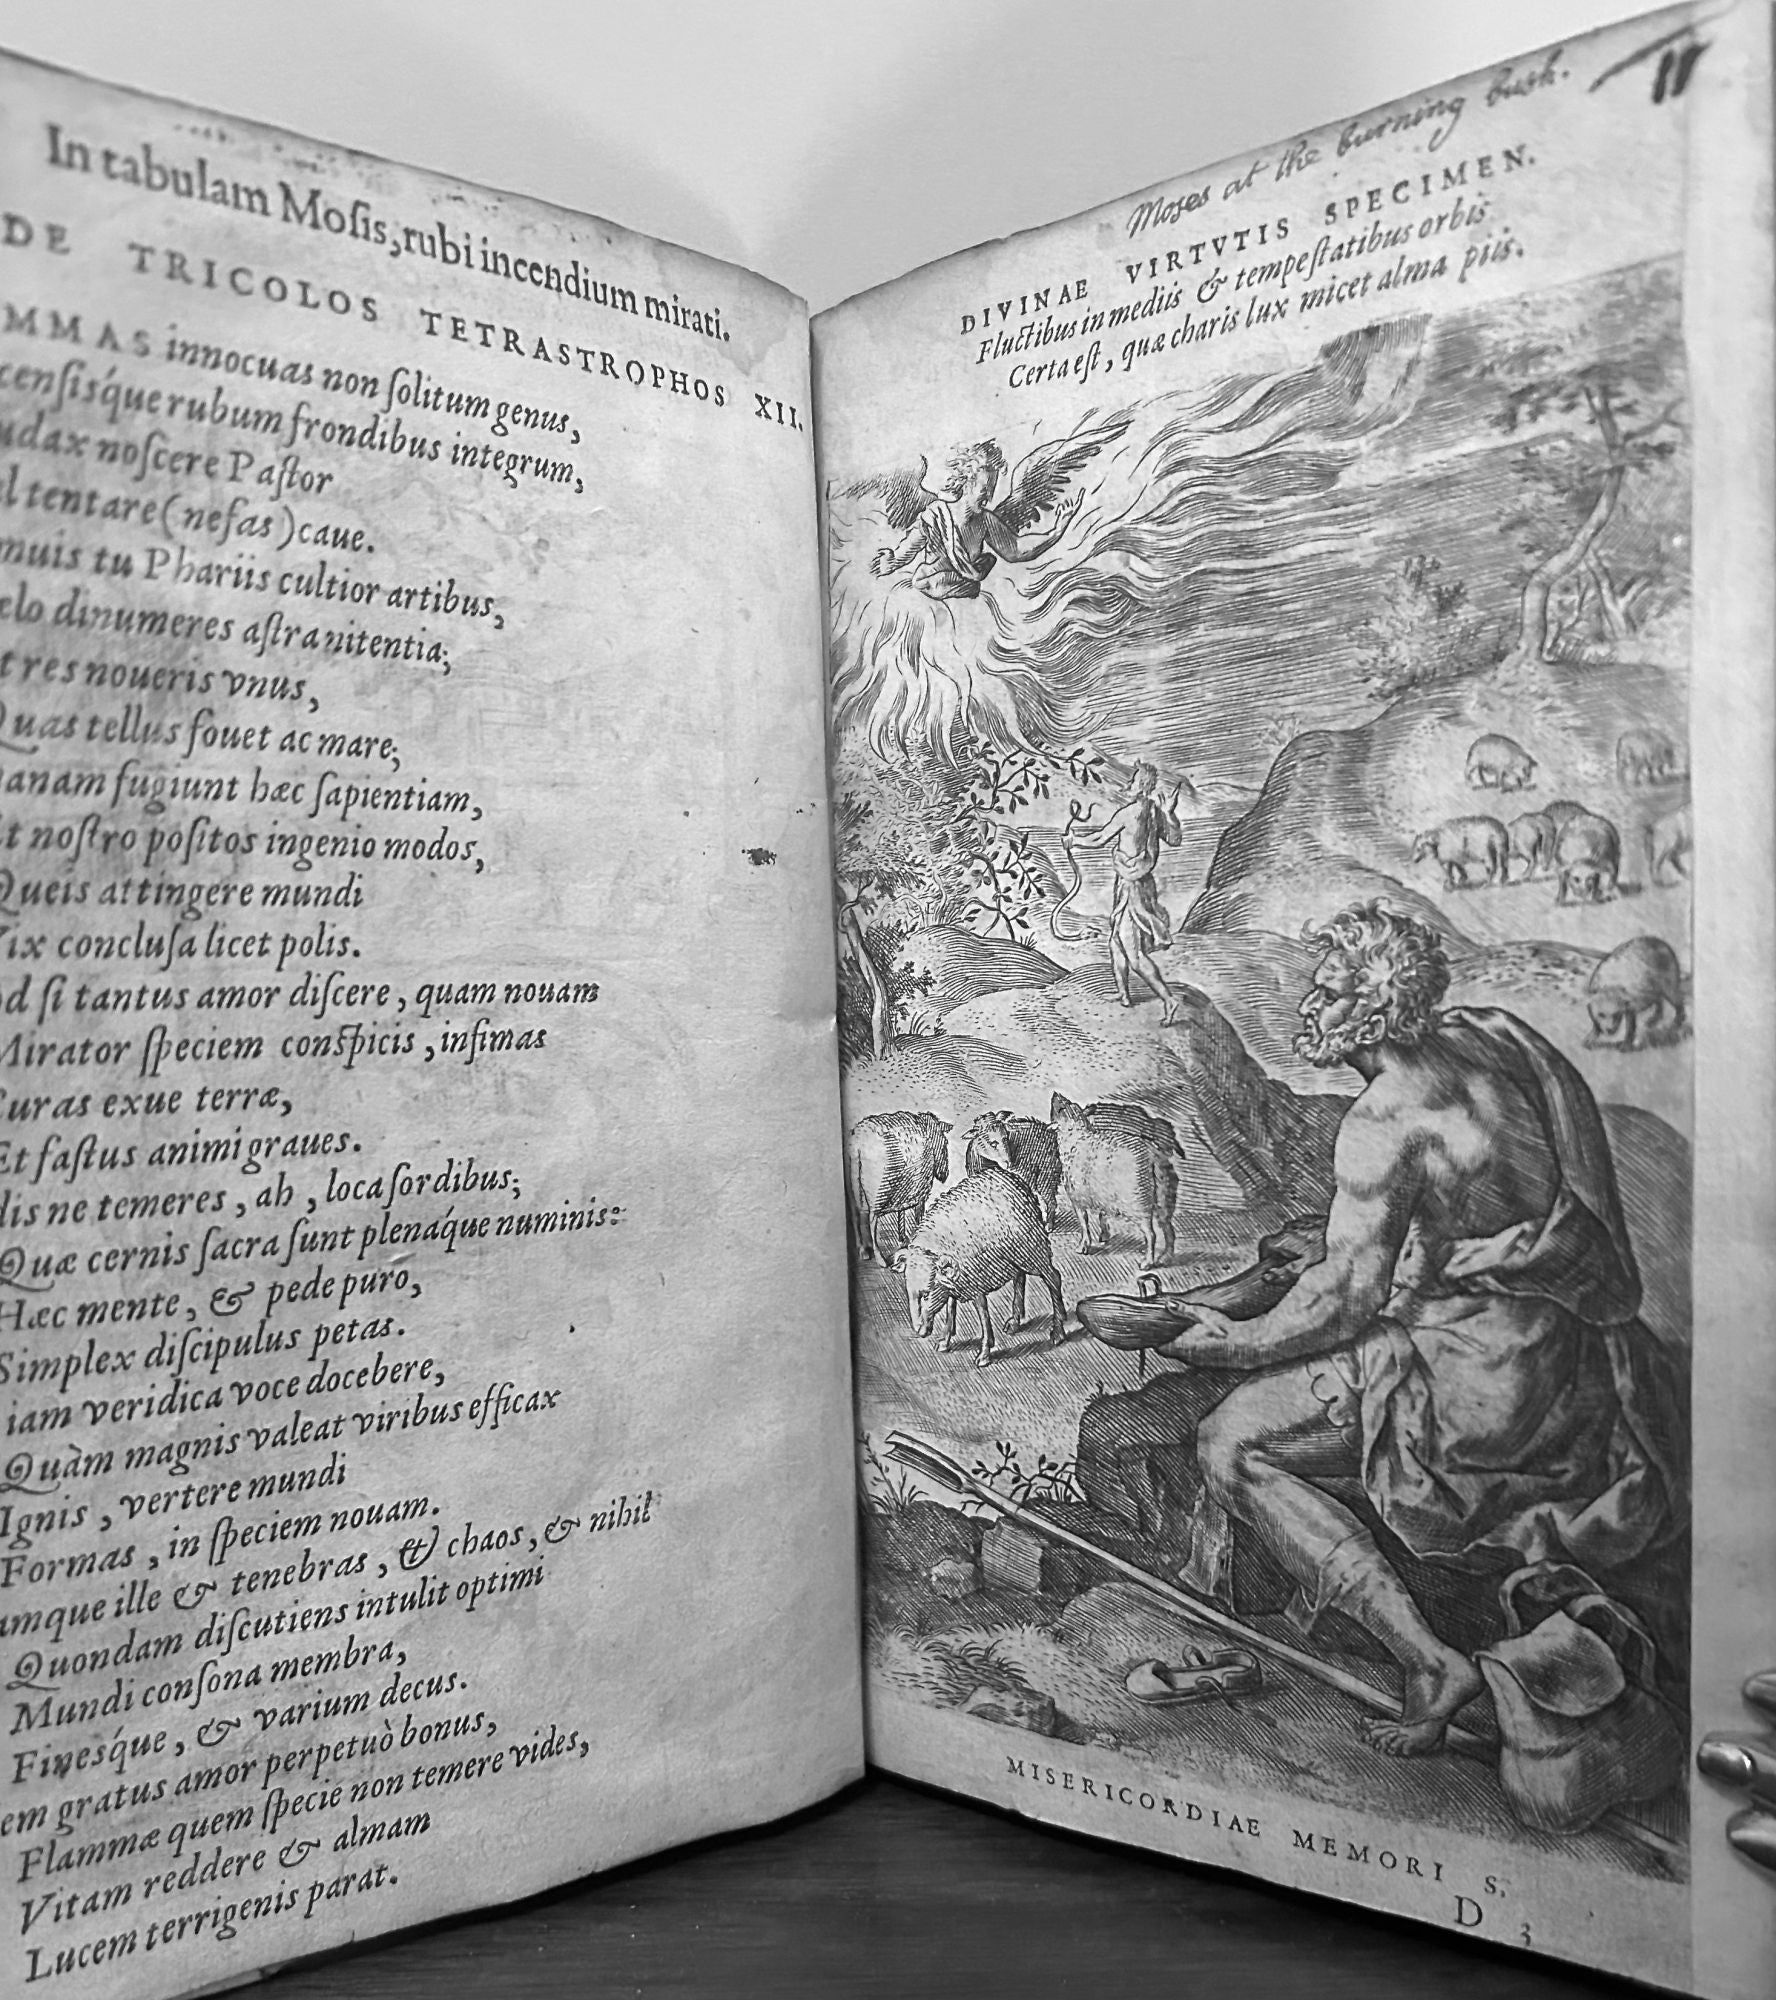 In tabulam Moſis, rubi incendium mirati.
DE TRICOLOS TETRASTROPHOS XII.
innocuas non ſolitum genus,
rubum frondibus integrum,
noſcere Paſtor
tentare (nefas) caue.
tu Phariis cultior artibus,
dinumeres aſtra nitentia;
res noueris vnus,
Quas tellus fouet ac mare;
fugiunt hæc ſapientiam,
Et noſtro poſitos ingenio modos,
Queis attingere mundi
Vix concluſa licet polis.
ſi tantus amor diſcere, quam nouam
Mirator ſpeciem conſpicis, infimas
Curas exue terræ,
Et faſtus animi graues.
ne temeres, ah, loca ſordibus;
Quæ cernis ſacra ſunt plenáque numinis:
Hæc mente, & pede puro,
Simplex diſcipulus petas.
iam veridica voce docebere,
Quàm magnis valeat viribus efficax
Ignis, vertere mundi
Formas, in ſpeciem nouam.
ille & tenebras, & chaos, & nihil
Quondam diſcutiens intulit optimi
Mundi conſona membra,
Fineśque, & varium decus.
gratus amor perpetuò bonus,
Flammæ quem ſpecie non temere vides,
Vitam reddere & almam
Lucem terrigenis parat.
11
Moses at the burning bush.
DIVINAE VIRTVTIS SPECIMEN.
Fluctibus in mediis & tempeſtatibus orbis
Certa eſt, quæ charis lux micet alma piis.
MISERICORDIAE MEMORI S.
D 3